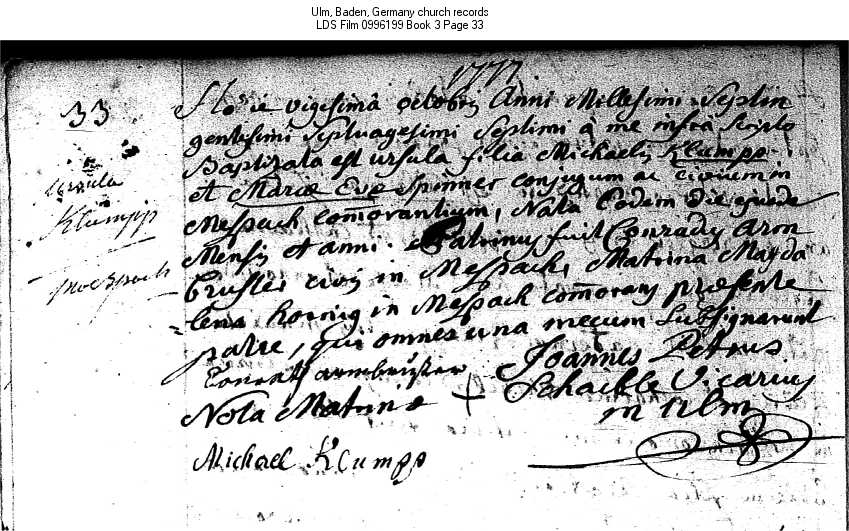 Ulm, Baden, Germany church records
LDS Film 0996199 Book 3 Page 33
1777
33
Ursula
Klumpp
Moespach
Hodie vigesimâ octobris Anni Millesimi Septin
gentesimi Septuagesimi Septimi à me infra scripto
Baptizata est ursula filia Michaelis Klumpp
et Mariæ Evæ Spinner conjugum ac civium in
Mespach comorantium, Nata Eodem die ejusde
Mensis et anni. Patrinus fuit Conradus Arm
bruster civis in Mespach, Matrina Magda
lena hornig in Mespach com̄orans præsente
patre, qui omnes una mecum subsignarunt
Conrat armbruster
Joannes Petrus
Schaeible Vicarius
in Ulm
Nota Matrinæ +
Michael Klumpp